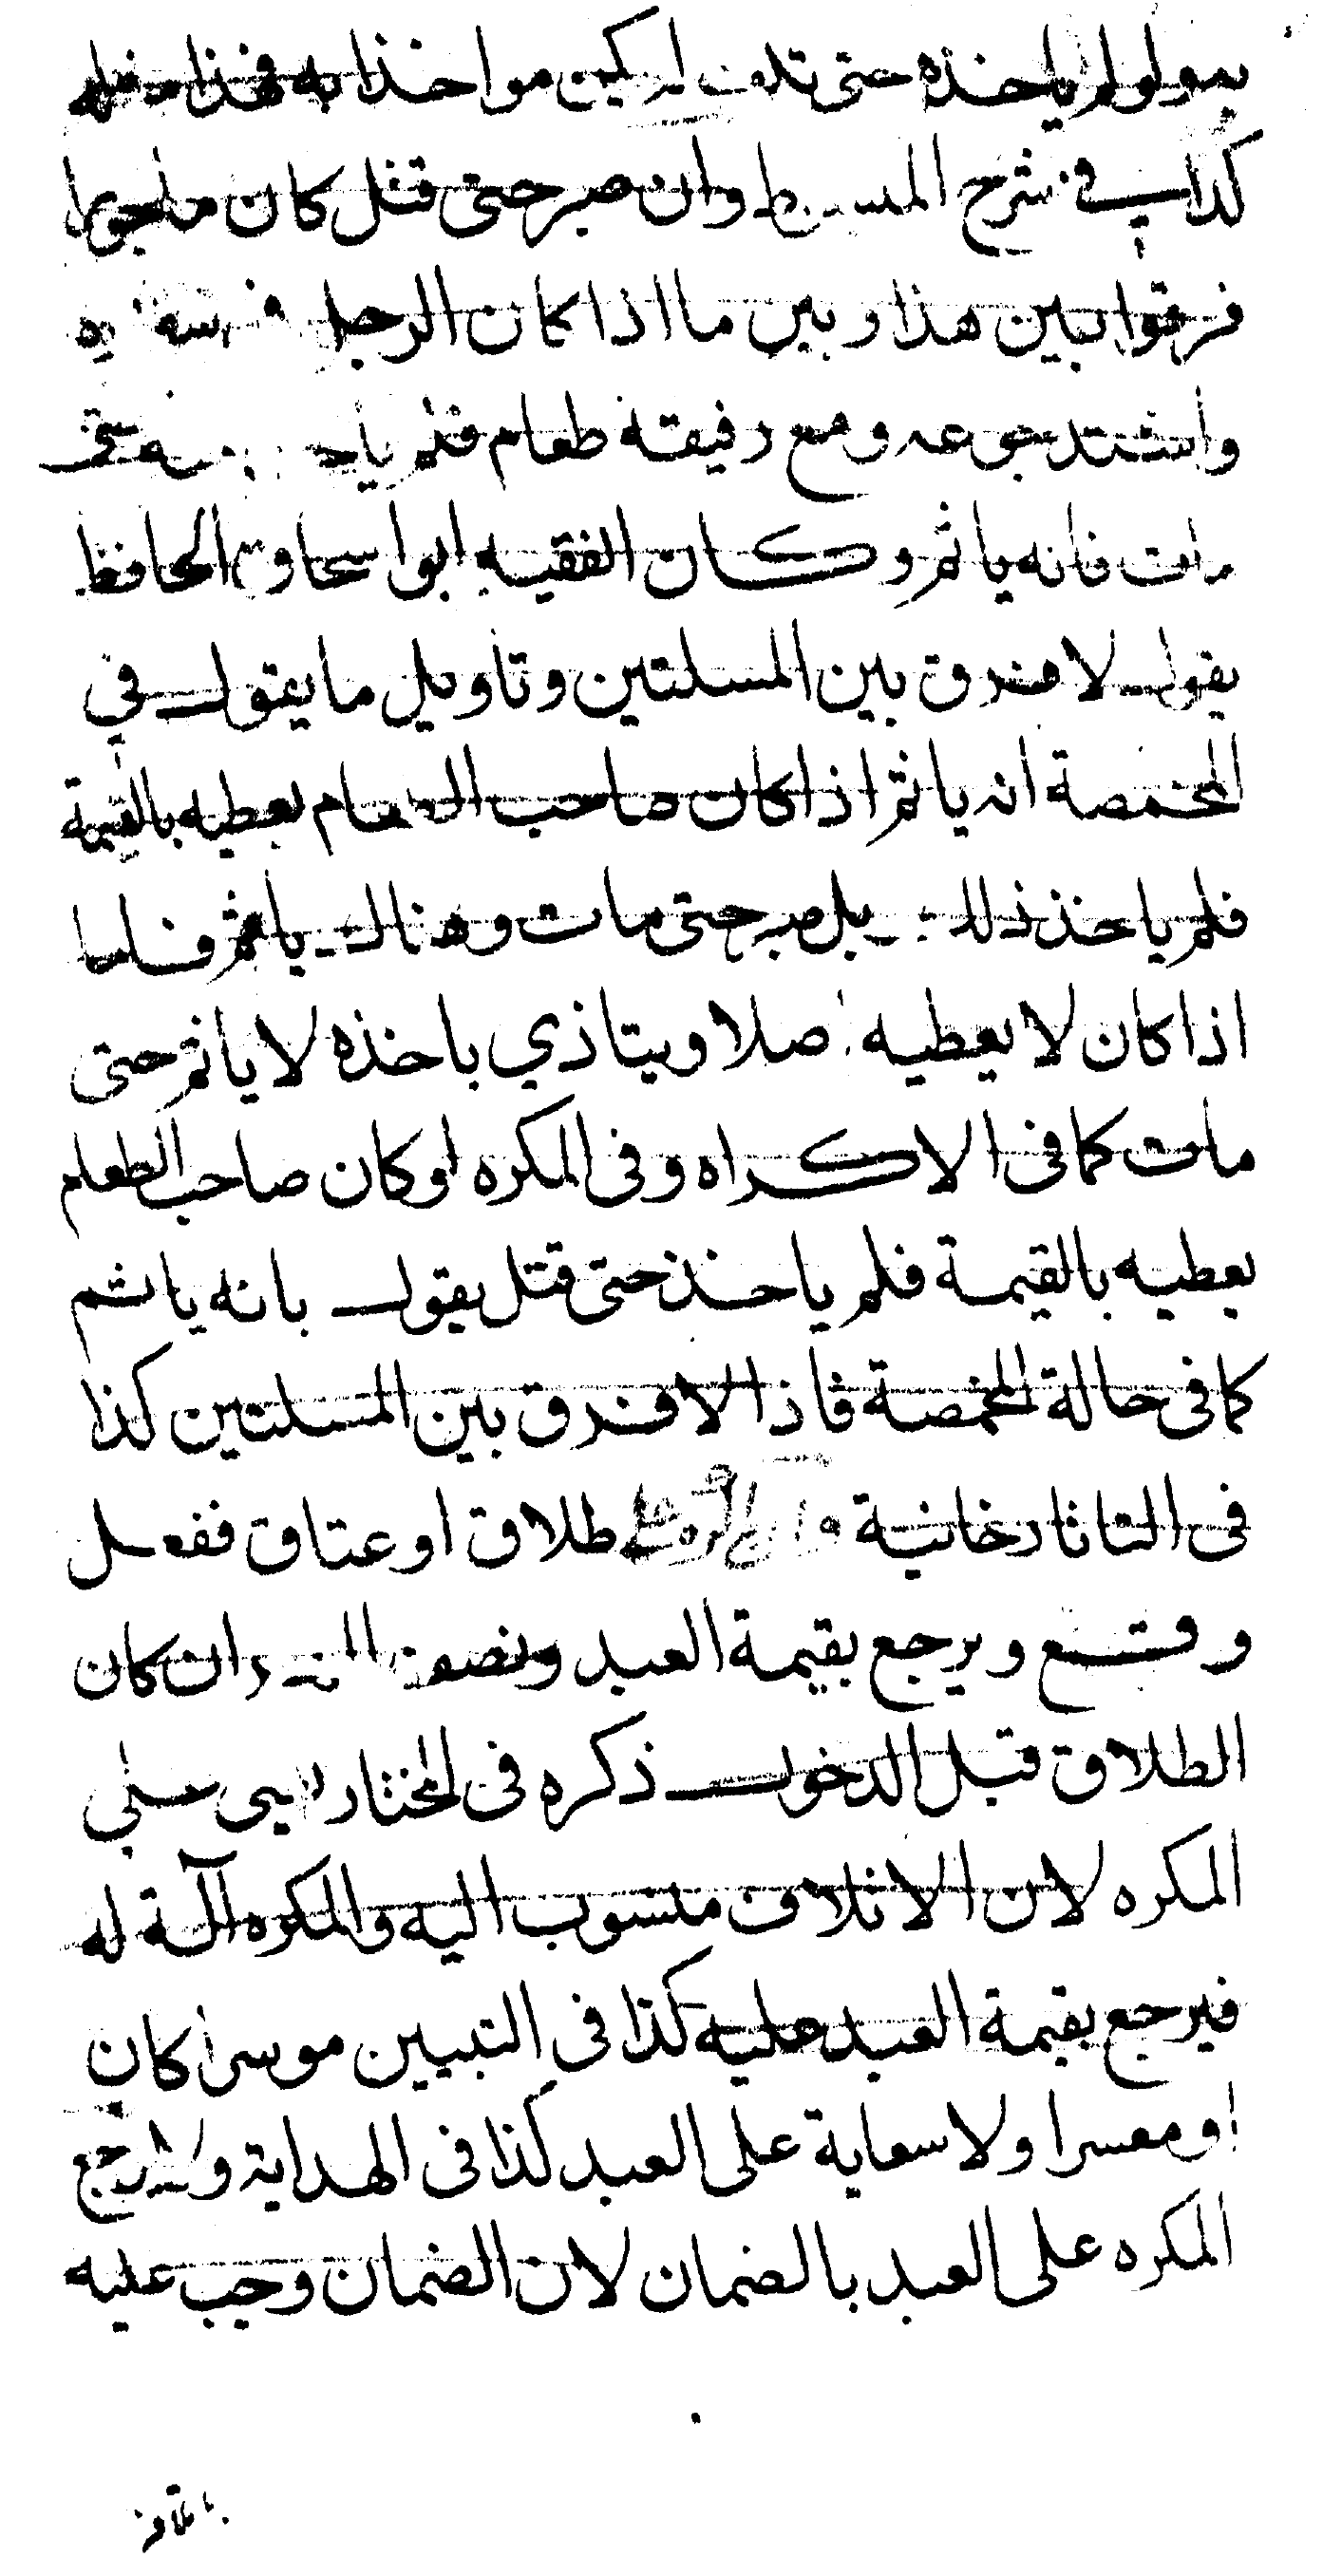 ولو لم ياخذه حتى تلف لم يكن مواخذا به فهذا مثله
كذا في شرح المبسوط وان صبر حتى قتل كان ماجورا
فرقوا بين هذا وبين ما اذا كان الرجل في
واشتد جوعه ومع رفيقه طعام فلم ياخذ منه حتى
مات فانه ياثم وكان الفقيه ابو اسحاق الحافظ
يقول لا فرق بين المسلتين وتاويل ما يقول في
المخمصة انه ياثم اذا كان صاحب الطعام يعطيه بالقيمة
فلم ياخذ ذلك بل صبر حتى مات وهناك ياثم فاما
اذا كان لا يعطيه اصلا ويتاذي باخذه لا ياثم حتى
مات كما في الاكراه وفي المكره لو كان صاحب الطعام
يعطيه بالقيمة فلم ياخذ حتى قتل يقول بانه ياثم
كما في حالة المخمصة فاذا لا فرق بين المسلتين كذا
في التاتارخانية وان اكره على طلاق او عتاق ففعل
وقع ويرجع بقيمة العبد ونصف المهر ان كان
الطلاق قبل الدخول ذكره في المختار على
المكره لان الاتلاف منسوب اليه والمكره آلة له
فيرجع بقيمة العبد عليه كذا في التبيين موسرا كان
او معسرا ولا سعاية على العبد كذا في الهداية ولا يرجع
المكره على العبد بالضمان لان الضمان وجب عليه
باتلافه